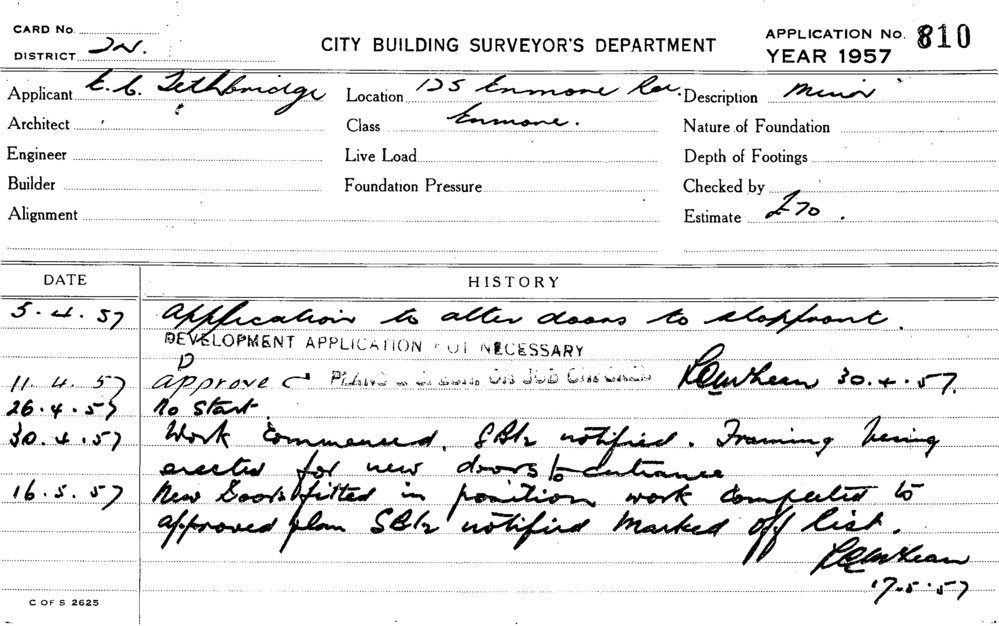 CARD No.
DISTRICT
CITY BUILDING SURVEYOR'S DEPARTMENT
APPLICATION No. 810
YEAR 1957
Applicant E. C. Lethbridge Location 125 Enmore Rd. Description Minor
Architect Class Enmore. Nature of Foundation
Engineer Live Load Depth of Footings
Builder Foundation Pressure Checked by
Alignment Estimate £70.
DATE HISTORY
5.4.57 Application to alter doors to shopfront.
DEVELOPMENT APPLICATION NOT NECESSARY
11.4.57 Approve PLANS & SPECN. ON JOB CHECKED 30.4.57.
26.4.57 No start.
30.4.57 Work commenced. notified. Framing being
erected for new doors to entrance
16.5.57 New doors fitted in position work completed to
approved plan notified Marked off list.
17.5.57
C OF S 2625